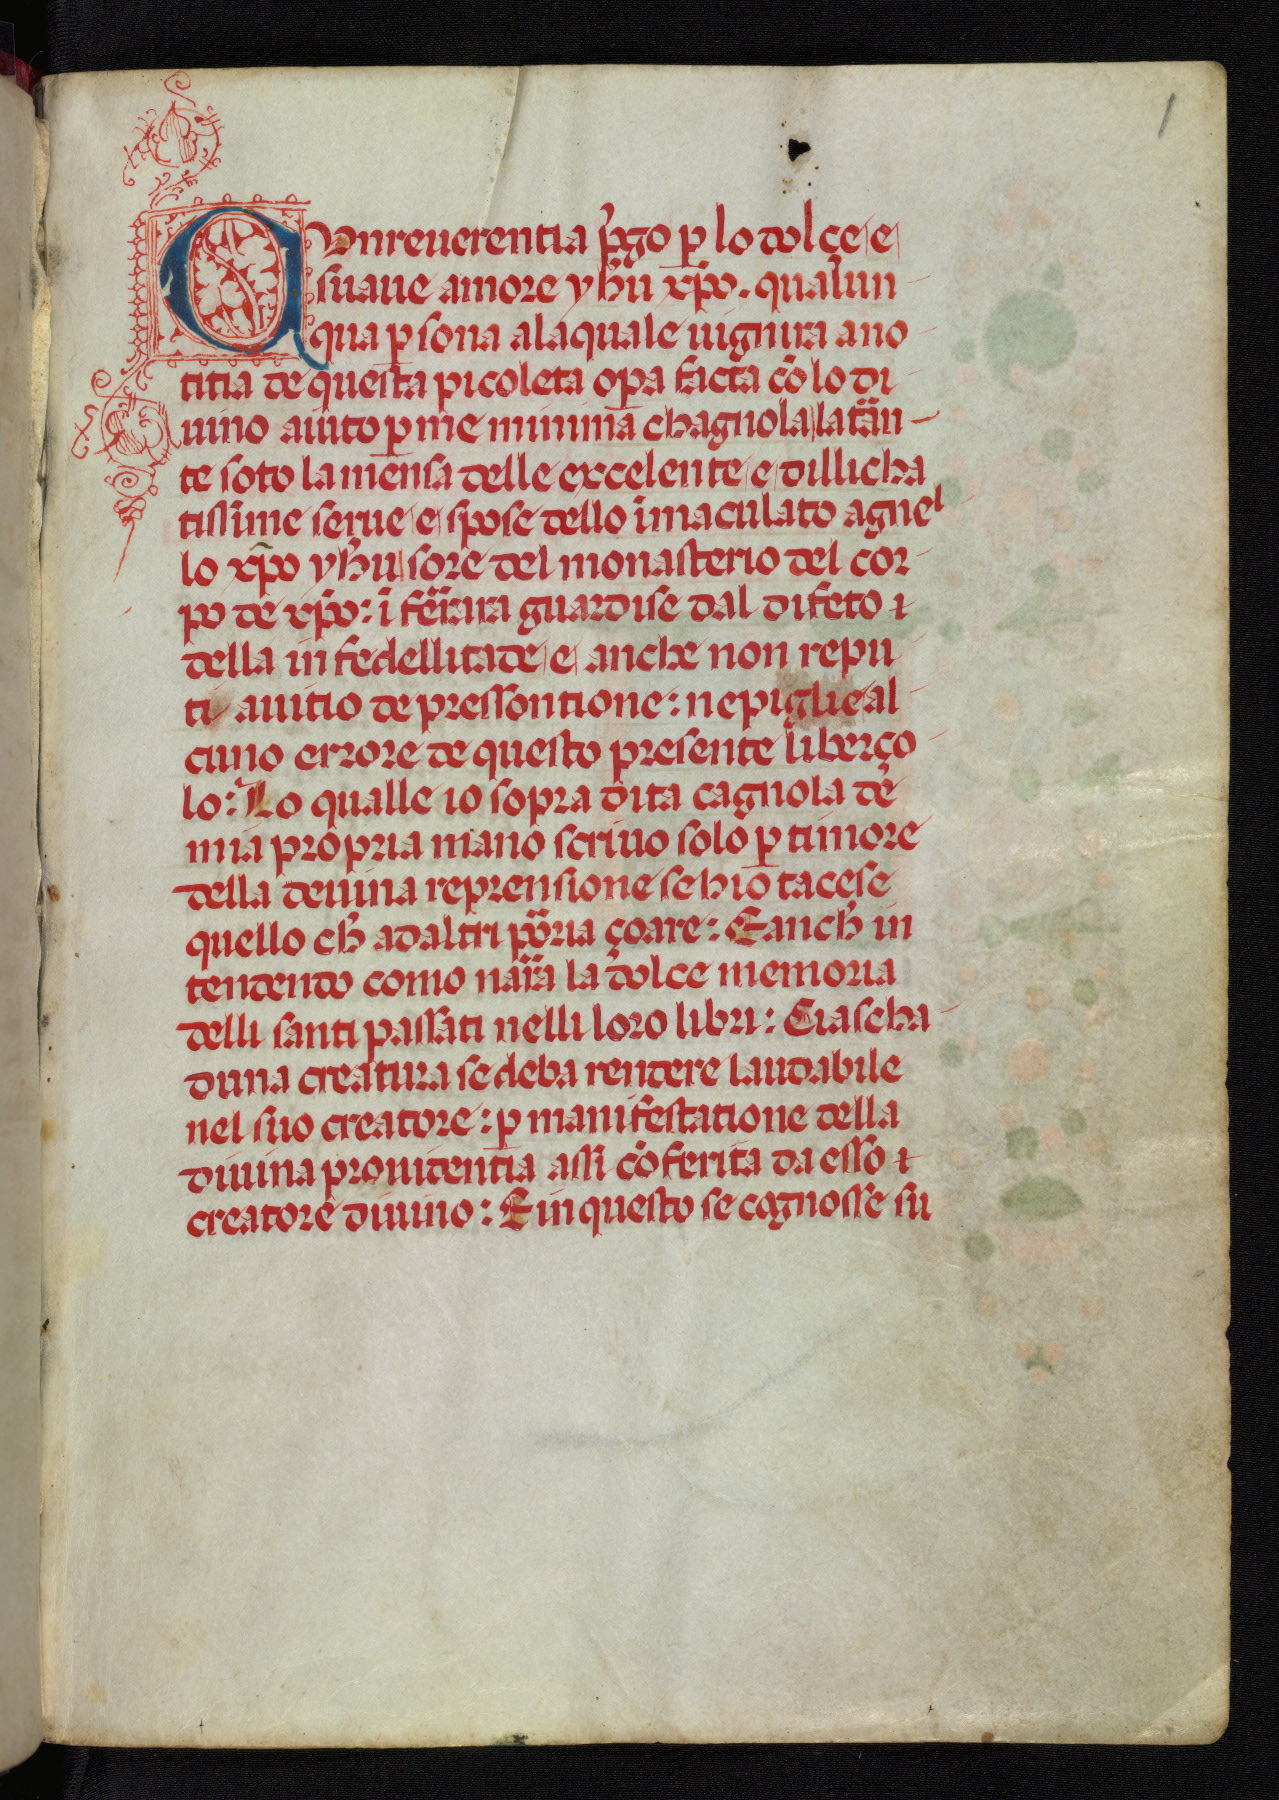 1
Cvnreuerentia p̃go ꝑ lo dolçe e
suaue amore yhũ xp̃o. qualun
qua ꝑsona ala quale uignira a no
titia de questa picoleta oꝑa facta cõ lo di
uino aiuto ꝑ me minima chagnola latrãn
te soto la mensa delle excelente e dillicha
tissime serue e spose dello ĩmaculato agnel
lo xp̃o yhũ sore del monasterio del cor
po de xp̃o: ĩ ferrara guardise dal difeto ⁊
della infedellitade e anche non repu
ti a uitio de pressontione: ne piglie al
cuno errore de questo presente liberço
lo: Lo qualle io sopra dita cagnola de
mia propria mano scriuo solo ꝑ timore
della deuina reprensione se hio tacese
quello ch̃ ad altri poria çoare: E anch̃ in
tendendo como narra la dolce memoria
delli santi passati nelli loro libri: Ciascha
duna creatura se deba rendere laudabile
nel suo creatore: ꝑ manifestatione della
diuina prouidentia assi cõferita da esso ⁊
creatore diuino: E in questo se cognosse su